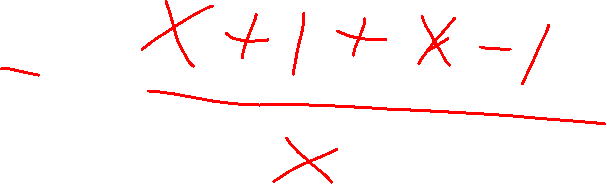 - x+1+x-1
x